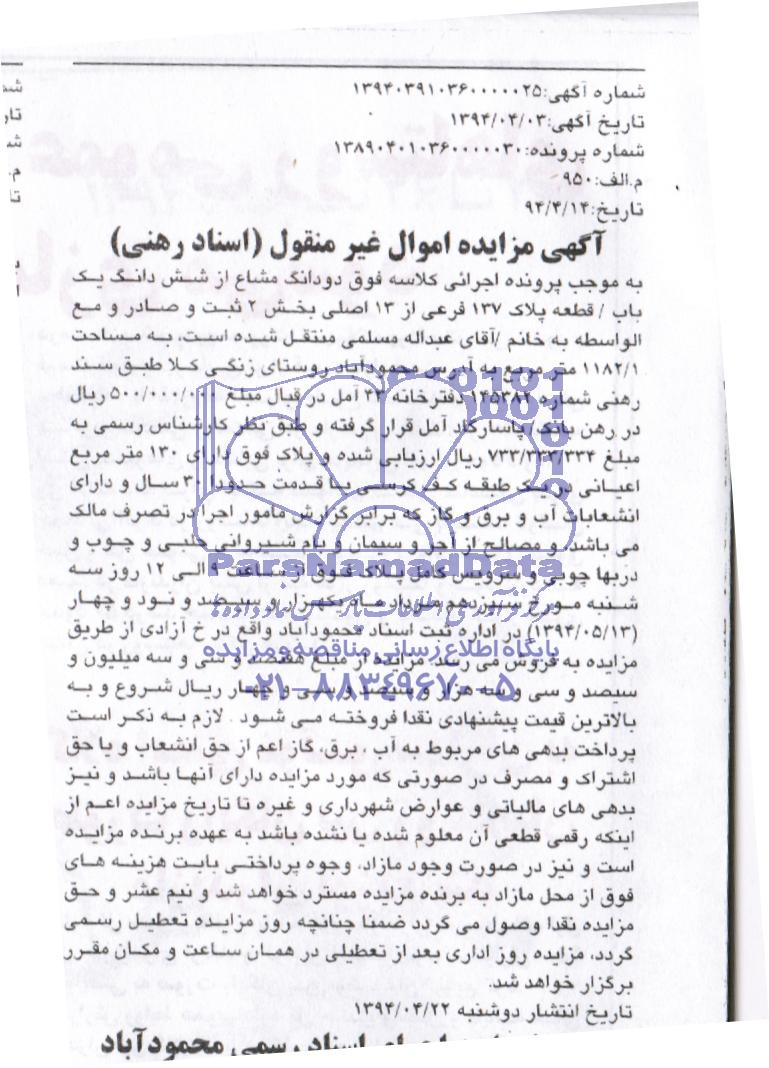 شماره آگهی:۱۳۹۴۰۳۹۱۰۳۶۰۰۰۰۰۲۵
تاریخ آگهی:۱۳۹۴/۰۴/۰۳
شماره پرونده:۱۳۸۹۰۴۰۱۰۳۶۰۰۰۰۰۳۰
م.الف:۹۵۰
تاریخ:۹۴/۴/۱۴
آگهی مزایده اموال غیر منقول (اسناد رهنی)
به موجب پرونده اجرائی کلاسه فوق دودانگ مشاع از شش دانگ یک
باب / قطعه پلاک ۱۳۷ فرعی از ۱۳ اصلی بخش ۲ ثبت و صادر و مع
الواسطه به خانم /آقای عبداله مسلمی منتقل شده است. به مساحت
۱۱۸۲/۱ متر مربع به آدرس محمودآباد روستای زنگی کلا طبق سند
رهنی شماره ۱۴۵۳۸۲ دفترخانه ۲۴ آمل در قبال مبلغ ۵۰۰/۰۰۰/۰۰۰ ریال
در رهن بانک پاسارگاد آمل قرار گرفته و طبق نظر کارشناس رسمی به
مبلغ ۷۳۳/۳۳۳/۳۳۴ ریال ارزیابی شده و پلاک فوق دارای ۱۳۰ متر مربع
اعیانی در یک طبقه کف کرسی با قدمت حدودا ۳۰ سال و دارای
انشعابات آب و برق و گاز که برابر گزارش مامور اجرا در تصرف مالک
می باشد. و مصالح از آجر و سیمان و بام شیروانی حلبی و چوب و
دربها چوبی و سرویس کامل پلاک فوق از ساعت ۹ الی ۱۲ روز سه
شنبه مورخ سیزدهم مرداد ماه یکهزار و سیصد و نود و چهار
(۱۳۹۴/۰۵/۱۳) در اداره ثبت اسناد محمودآباد واقع در خ آزادی از طریق
مزایده به فروش می رسد. مزایده از مبلغ هفتصد و سی و سه میلیون و
سیصد و سی و سه هزار و سیصد و سی و چهار ریال شروع و به
بالاترین قیمت پیشنهادی نقدا فروخته می شود . لازم به ذکر است
پرداخت بدهی های مربوط به آب ، برق، گاز اعم از حق انشعاب و یا حق
اشتراک و مصرف در صورتی که مورد مزایده دارای آنها باشد و نیز
بدهی های مالیاتی و عوارض شهرداری و غیره تا تاریخ مزایده اعم از
اینکه رقمی قطعی آن معلوم شده یا نشده باشد به عهده برنده مزایده
است و نیز در صورت وجود مازاد، وجوه پرداختی بابت هزینه های
فوق از محل مازاد به برنده مزایده مسترد خواهد شد و نیم عشر و حق
مزایده نقدا وصول می گردد ضمنا چنانچه روز مزایده تعطیل رسمی
گردد، مزایده روز اداری بعد از تعطیلی در همان ساعت و مکان مقرر
برگزار خواهد شد.
تاریخ انتشار دوشنبه ۱۳۹۴/۰۴/۲۲
اسناد رسمی محمودآباد
ParsNamadData
پایگاه اطلاع رسانی مناقصه و مزایده
۰۲۱-۸۸۳۴۹۶۷۰-۵